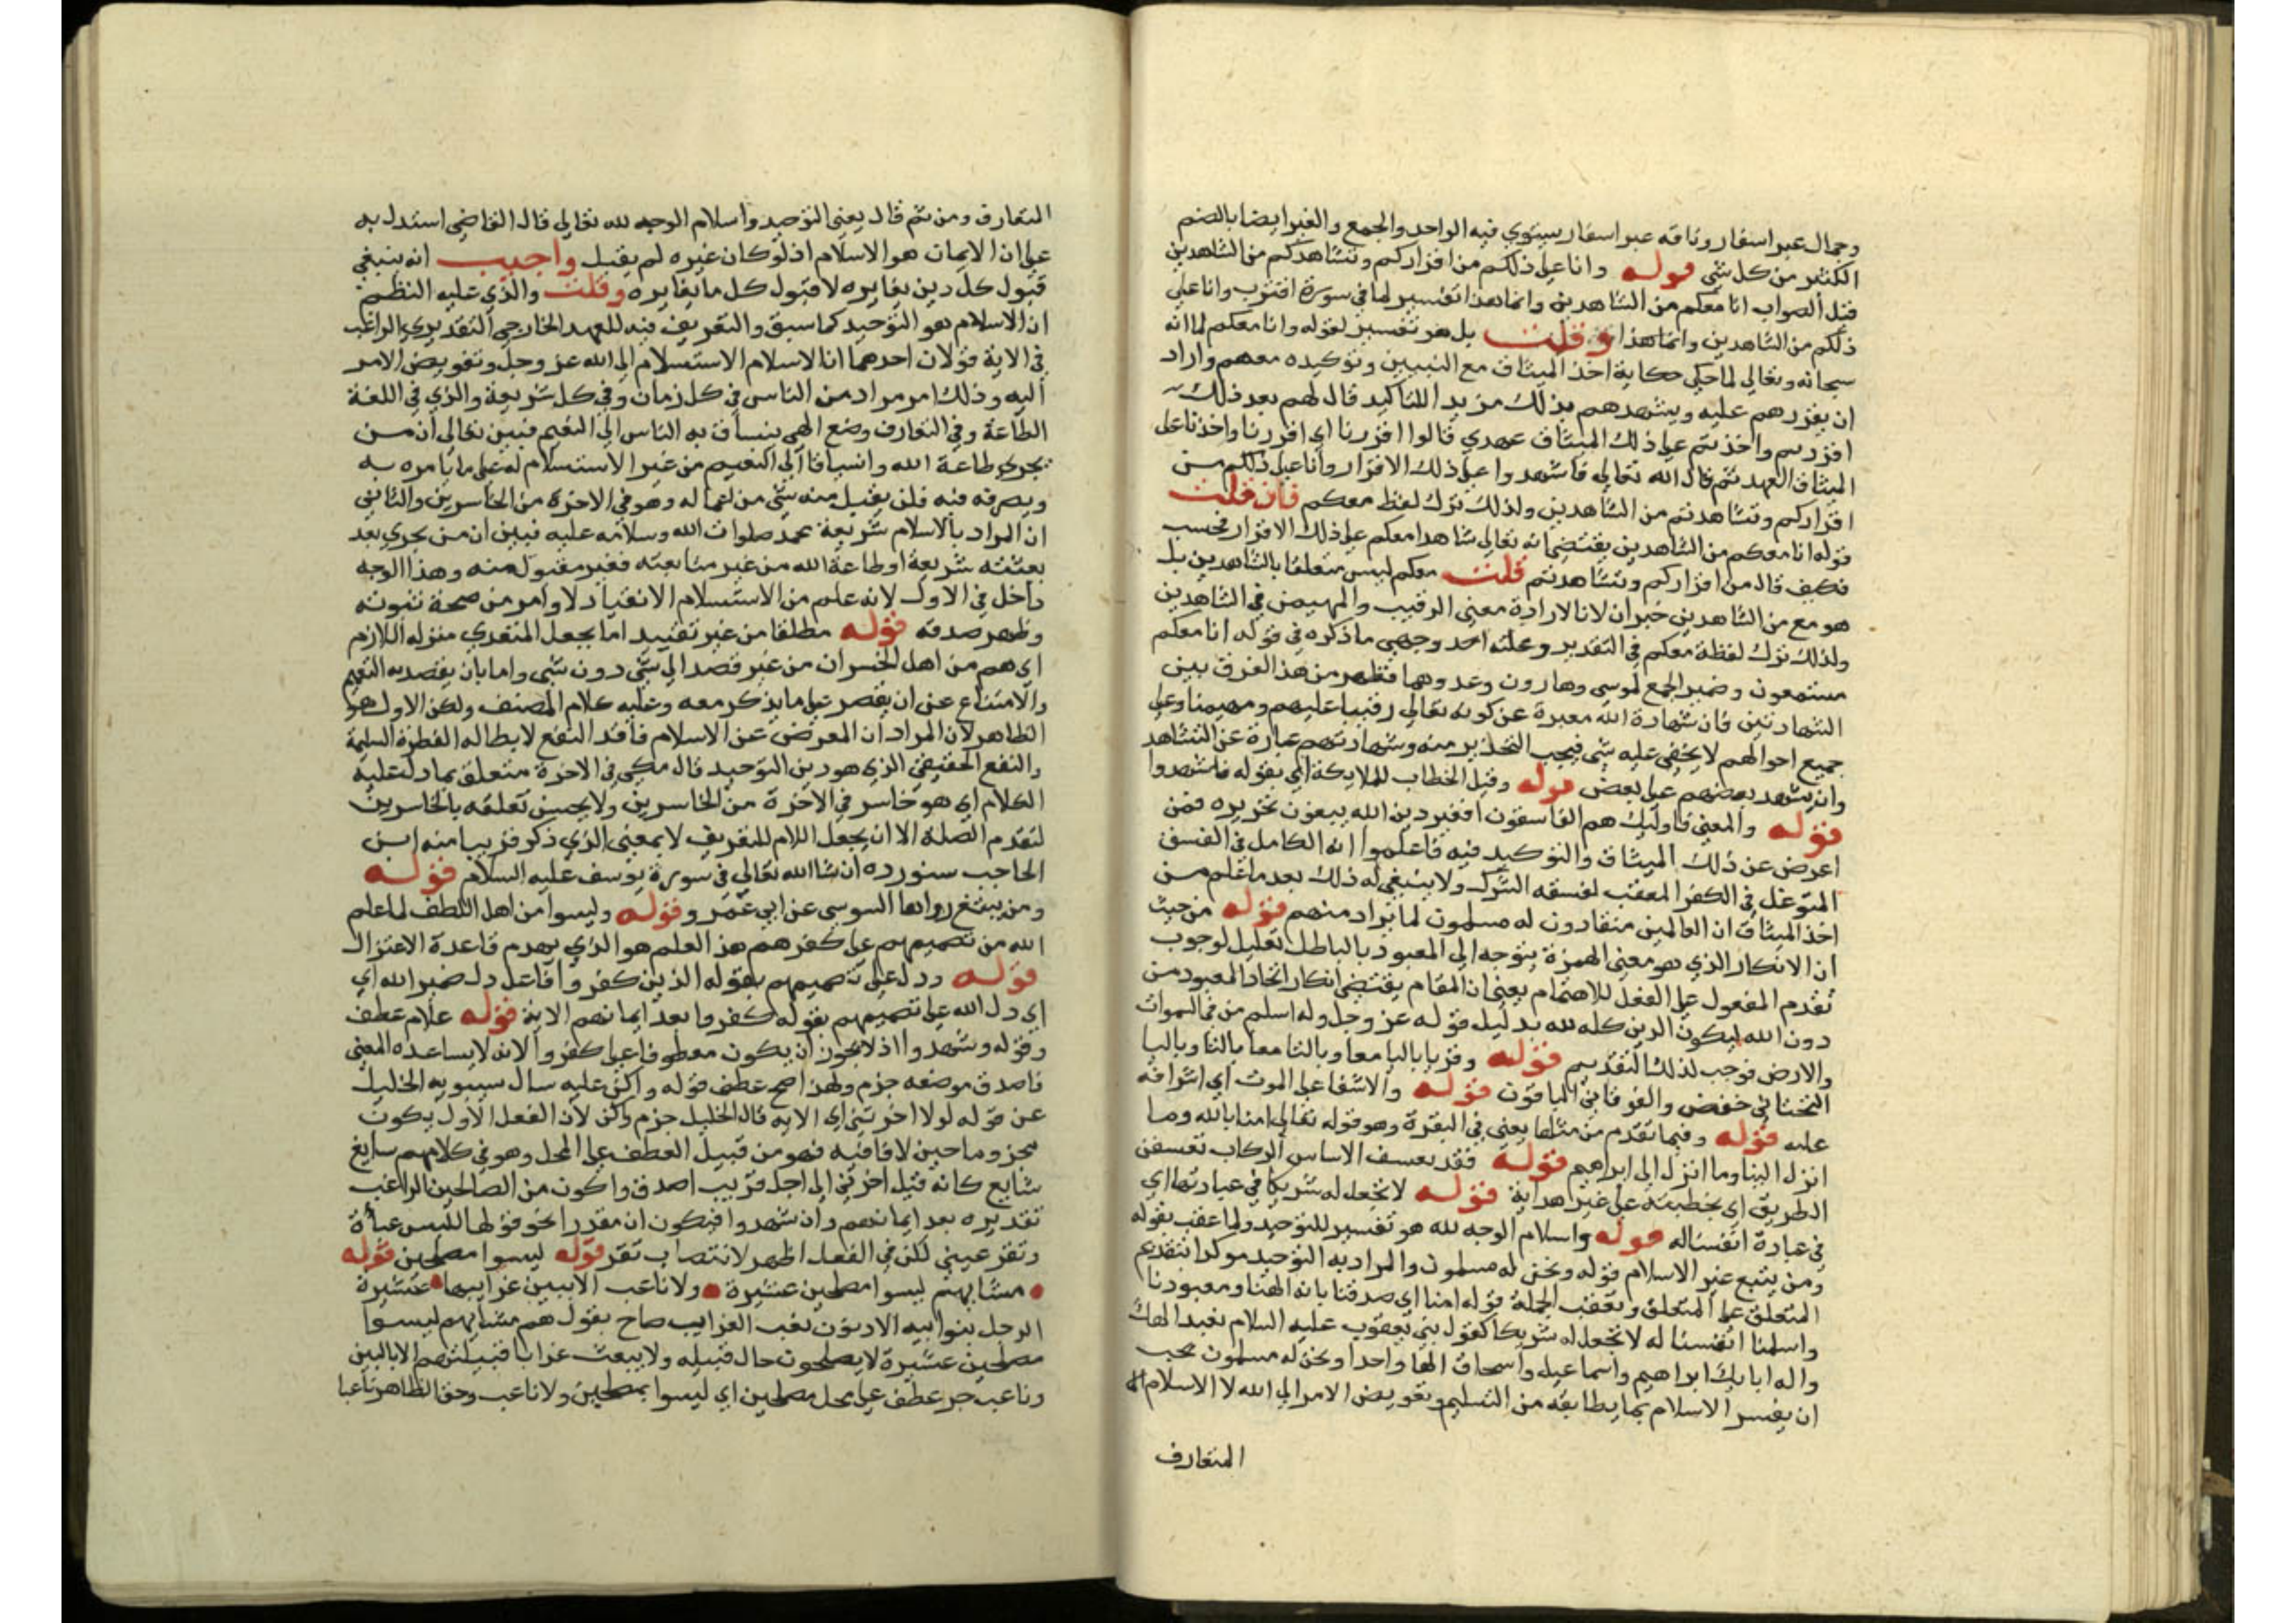 وجمال عبر اسفار وناقه عبر اسفار يستوي فيه الواحد والجمع والعبر ايضا بالضم
الكثير من كل شي قوله وانا على ذلكم من اقراركم وتشاهدكم من الشاهدين
قيل الصواب انا معكم من الشاهدين وانما هذا تفسير لما في سورة اقترب وانا على
ذلكم من الشاهدين وانما هذا وقلت بل هو تفسير لقوله وانا معكم لما انه
سبحانه وتعالي لما حكي حكاية اخذ الميثاق مع النبيين وتوكيده معهم واراد
ان يقررهم عليه ويشهدهم بذلك مزيدا للتاكيد قال لهم بعد ذلك
اقررتم واخذتم على ذلك الميثاق عهدي قالوا اقررنا اي اقررنا واخذنا على
الميثاق العهد ثم قال الله تعالي فاشهدوا على ذلك الاقرار وانا على ذلكم من
اقراركم وتشاهدتم من الشاهدين ولذلك ترك لفظ معكم فان قلت
قوله انا معكم من الشاهدين يقتضي انه تعالي شاهدا معكم على ذلك الاقرار فحسب
فكيف قال من اقراركم وتشاهدتم قلت معكم ليس متعلقا بالشاهدين بل
هو مع من الشاهدين خبر ان لانا لارادة معني الرقيب والمهيمن في الشاهدين
ولذلك ترك لفظة معكم في التقدير وعليه احد وجهي ما ذكره في قوله انا معكم
مستمعون وضمير الجمع لموسي وهارون وعدوهما فظهر من هذا الفرق بين
الشهادتين فان شهادة الله معبرة عن كونه تعالي رقيبا عليهم ومهيمنا وعلى
جميع احوالهم لا يخفي عليه شي فيجب التحذير منه وشهادتهم عبارة عن التشاهد
وان يشهد بعضهم على بعض قوله وقيل الخطاب للملايكة اي بقوله فاشهدوا
قوله والمعني فاوليك هم الفاسقون افغير دين الله يبغون تحريره فمن
اعرض عن ذلك الميثاق والتوكيد فيه فاعلموا انه الكامل في الفسق
المتوغل في الكفر المعقب لفسقه الشرك ولا ينبغي له ذلك بعد ما علم من
اخذ الميثاق ان العالمين منقادون له مسلمون لما يراد منهم قوله من حيث
ان الانكار الذي هو معني الهمزة يتوجه الي المعبود بالباطل تعليل لوجوب
تقدم المفعول على الفعل للاهتمام يعني ان المقام يقتضي انكار اتخاذ المعبود من
دون الله ليكون الدين كله لله بدليل قوله عز وجل وله اسلم من في السموات
والارض فوجب لذلك التقديم قوله وقريا باليا معا وبالتا معا بالتا وباليا
التحتاني حفص والفوقاني الباقون قوله والاشفا على الموت اي اشرافه
عليه قوله وفيما تقدم من مثلها يعني في البقرة وهو قوله تعالي امنا بالله وما
انزل الينا وما انزل الي ابراهيم قوله فقد تعسف الاساس الركاب تعسفن
الطريق اي يخطبنه على غير هداية قوله لا نجعل له شريكا في عبادتها اي
في عبادة انفسنا له قوله واسلام الوجه لله هو تفسير للتوحيد ولما عقب بقوله
ومن يتبع غير الاسلام قوله ونحن له مسلمون والمراد به التوحيد موكدا بتقديم
المتعلق على المتعلق وتعقب الجملة قوله امنا اي صدقنا بانه الهنا ومعبودنا
واسلمنا انفسنا له لا نجعل له شريكا كقول بني يعقوب عليه السلام نعبد الهك
واله ابايك ابراهيم واسماعيل واسحاق الها واحدا ونحن له مسلمون يجب
ان يفسر الاسلام بما يطابقه من التسليم وتفويض الامر الي الله لا الاسلام
المتعارف
المتعارف ومن ثم قال يعني التوحيد واسلام الوجه لله تعالي قال القاضي استدل به
على ان الايمان هو الاسلام اذ لو كان غيره لم يقبل واجيب انه ينبغي
قبول كل دين يغايره لا قبول كل ما يغايره وقلت والذي عليه النظم
ان الاسلام هو التوحيد كما سبق والتعريف فيه للعهد الخارجي التقديري الراغب
في الاية قولان احدهما ان الاسلام الاستسلام الي الله عز وجل وتفويض الامر
اليه وذلك امر مراد من الناس في كل زمان وفي كل شريعة والذي في اللغة
الطاعة وفي التعارف وضع الهي ينساق به الناس الي النعيم فبين تعالي ان من
تحري طاعة الله وانسياقا الي النعيم من غير الاستسلام له على ما يامره به
ويصرفه فيه فلن يقبل منه شي من اعماله وهو في الاخرة من الخاسرين والثاني
ان المراد بالاسلام شريعة محمد صلوات الله وسلامه عليه فبين ان من تحري بعد
بعثته شريعة او طاعة الله من غير متابعته فغير مقبول منه وهذا الوجه
داخل في الاول لانه علم من الاستسلام الانقياد لاوامر من صحة نبوته
وظهر صدقه قوله مطلقا من غير تقييد اما بجعل المتعدي منزله اللازم
اي هم من اهل الخسران من غير قصد الي شي دون شي واما بان يقصد به التعميم
والامتناع عن ان يقصر على ما يذكر معه وعليه كلام المصنف ولكن الاول هو
الظاهر لان المراد ان المعرض عن الاسلام فاقد النفع لابطاله الفطرة السليمة
والنفع الحقيقي الذي هو دين التوحيد قال مكي في الاخرة متعلق بما دل عليه
الكلام اي هو خاسر في الاخرة من الخاسرين ولا يحسن تعلقه بالخاسرين
لتقدم الصلة الا ان يجعل اللام للتعريف لا بمعني الذي ذكر قريبا منه ابن
الحاجب سنورده ان شا الله تعالي في سورة يوسف عليه السلام قوله
ومن يبتغ رواها السوسي عن ابي عمر وقوله وليسوا من اهل اللطف لما علم
الله من تصميمهم على كفرهم هذا العلم هو الذي يهدم قاعدة الاعتزال
قوله ودل على تصميمهم بقوله الذين كفروا فاعل دل ضمير الله اي
اي دل الله على تصميمهم بقوله كفروا بعد ايمانهم الاية قوله علام عطف
وقوله وشهدوا اذ لا يجوز ان يكون معطوفا على كفروا لانه لا يساعده المعني
فاصدق موضعه جزم ولهذا صح عطف قوله واكن عليه سال سيبويه الخليل
عن قوله لولا اخرتني اي الايه قال الخليل جزم واكن لان الفعل الاول يكون
مجزوما حين لا فا فيه فهو من قبيل العطف على المحل وهو في كلامهم سايغ
شايع كانه قيل اخرتني الي اجل قريب اصدق واكون من الصالحين الراغب
تقديره بعد ايمانهم وان شهدوا فيكون ان مقدرا نحو قولها للبس عباة
وتقر عيني لكن في الفعل اظهر لانتصاب تقر قوله ليسوا مصلحين قوله
مشايهم ليسوا مصلحين عشيرة ولا ناعب الا ببين غرابيها عشيرة
الرجل بنو ابيه الادنون نعب الغرايب صاح يقول هم مشايهم ليسوا
مصلحين عشيرة لا يصلحون حال قبيله ولا يبعث غرابا قبيلتهم الا بالبين
وناعب جر عطف على محل مصلحين اي ليسوا بمصلحين ولا ناعب وحق الظاهر ناعبا